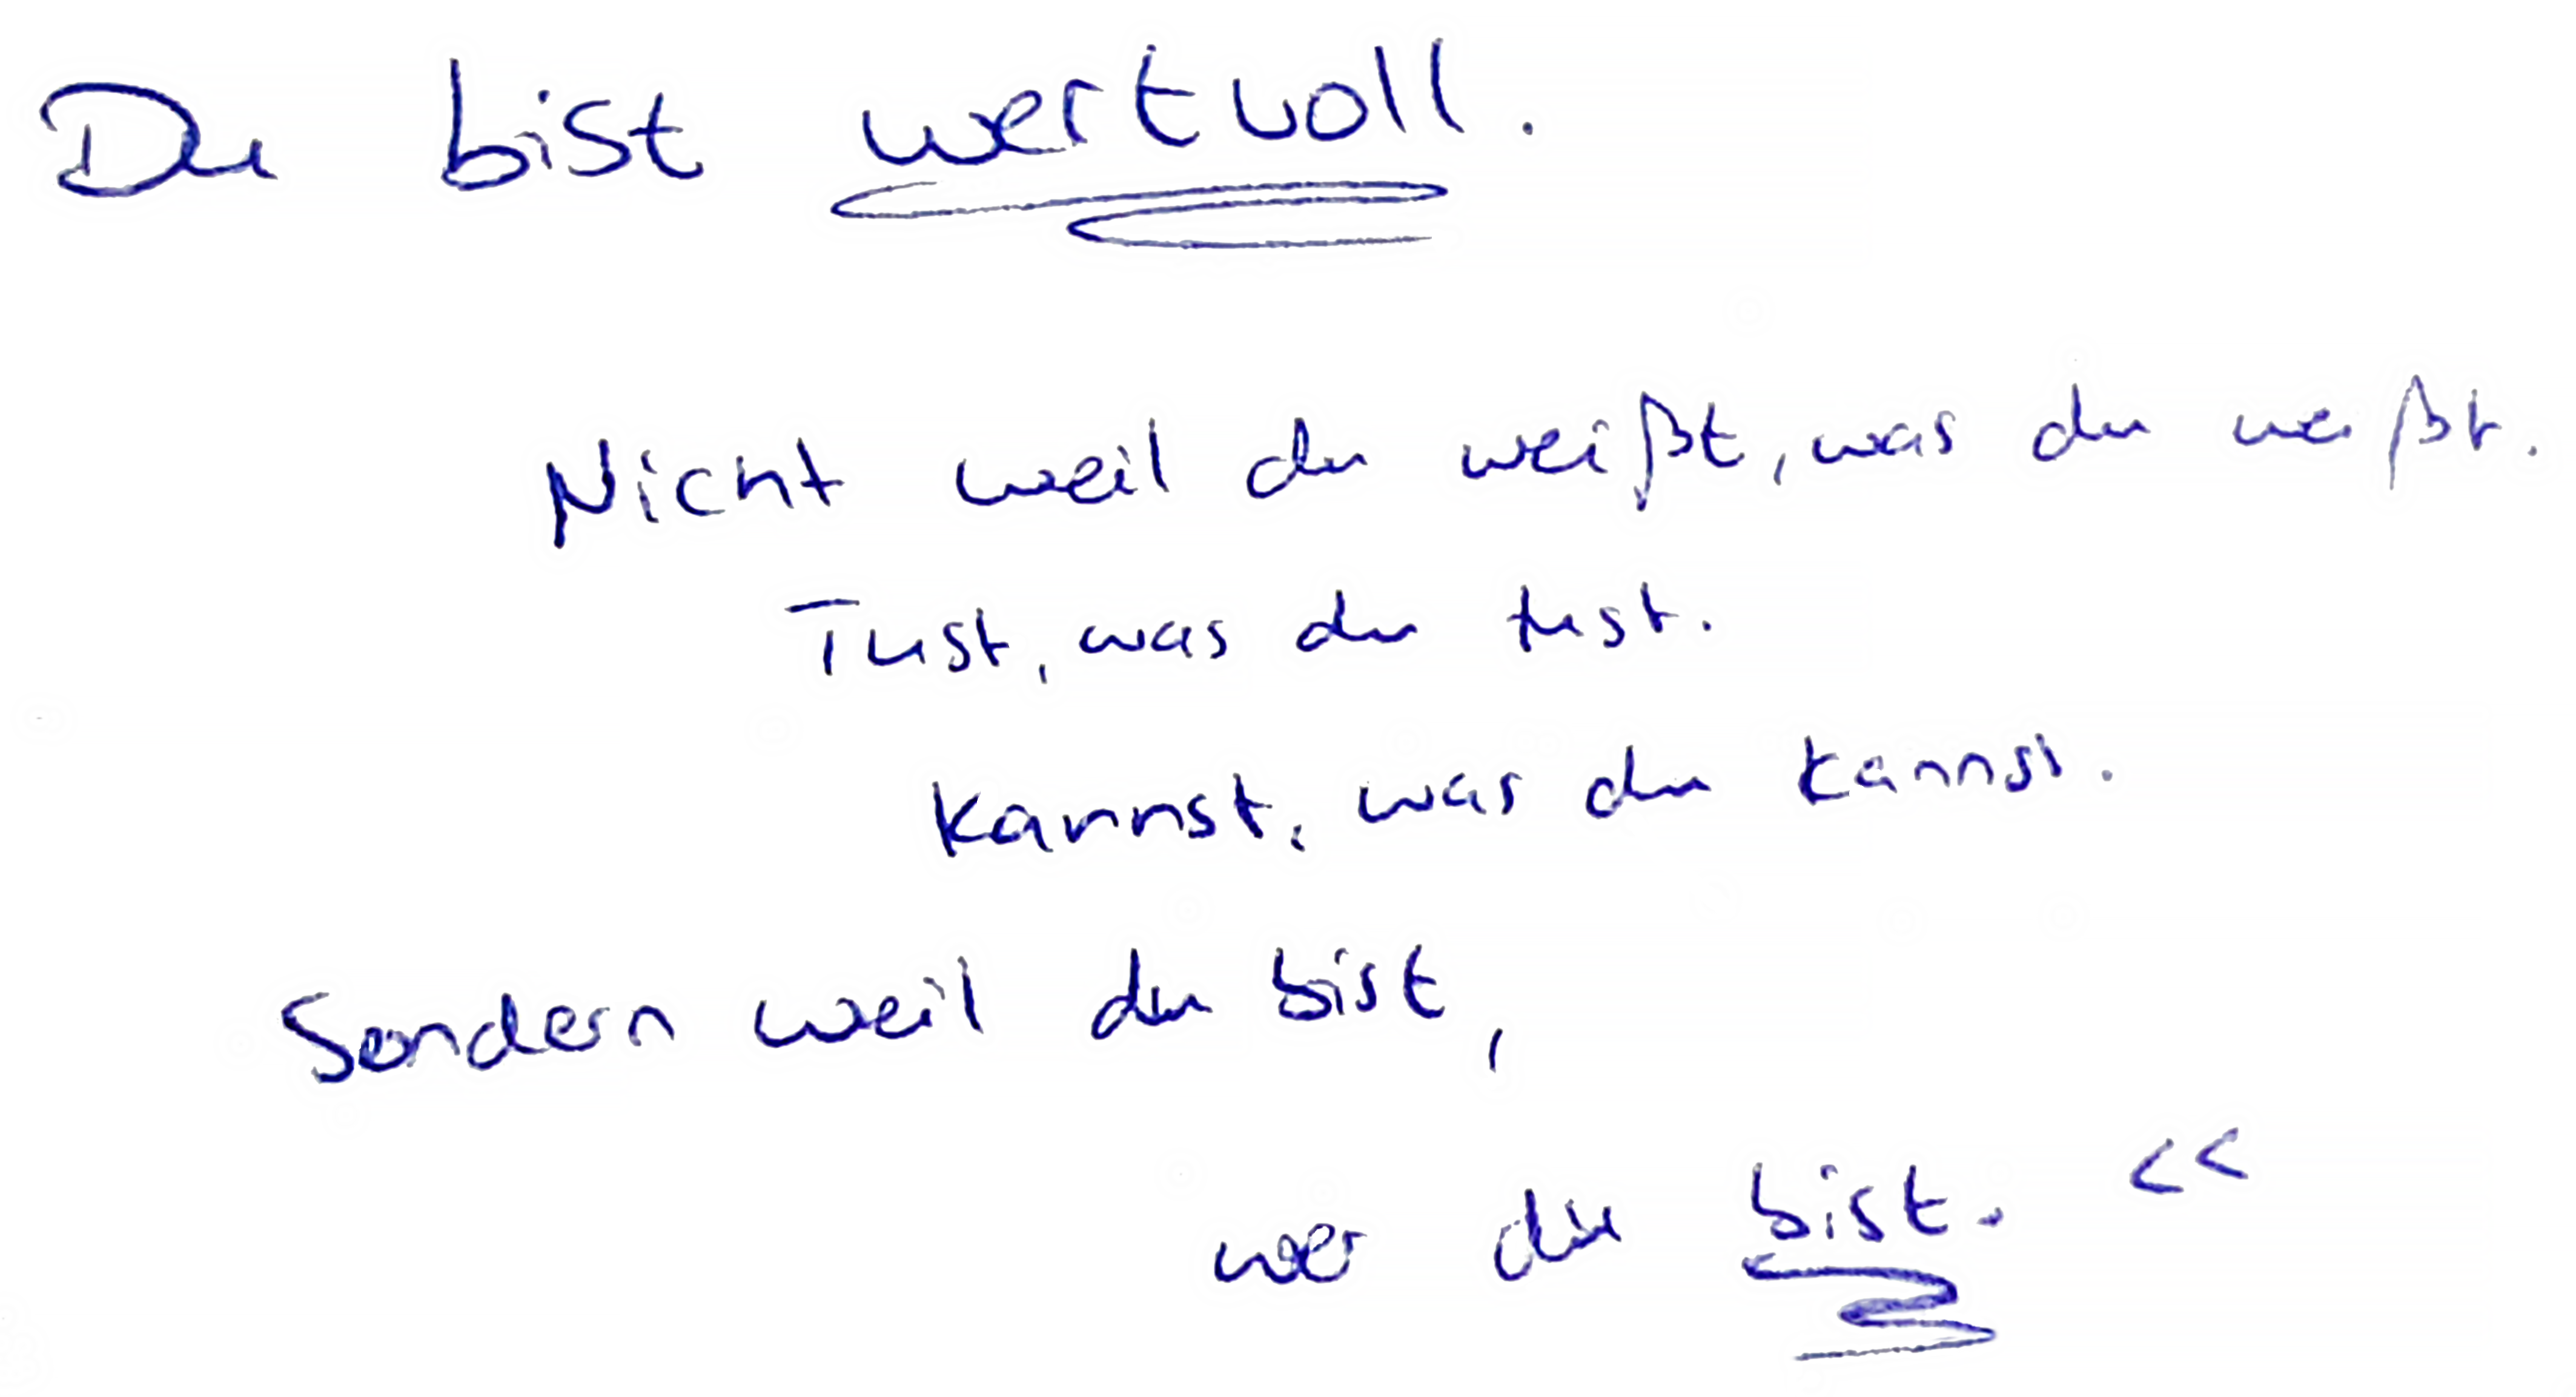 Du bist wertvoll.
Nicht weil du weißt, was du weißt.
Tust, was du tust.
Kannst, was du kannst.
Sondern weil du bist,
wer du bist. <<